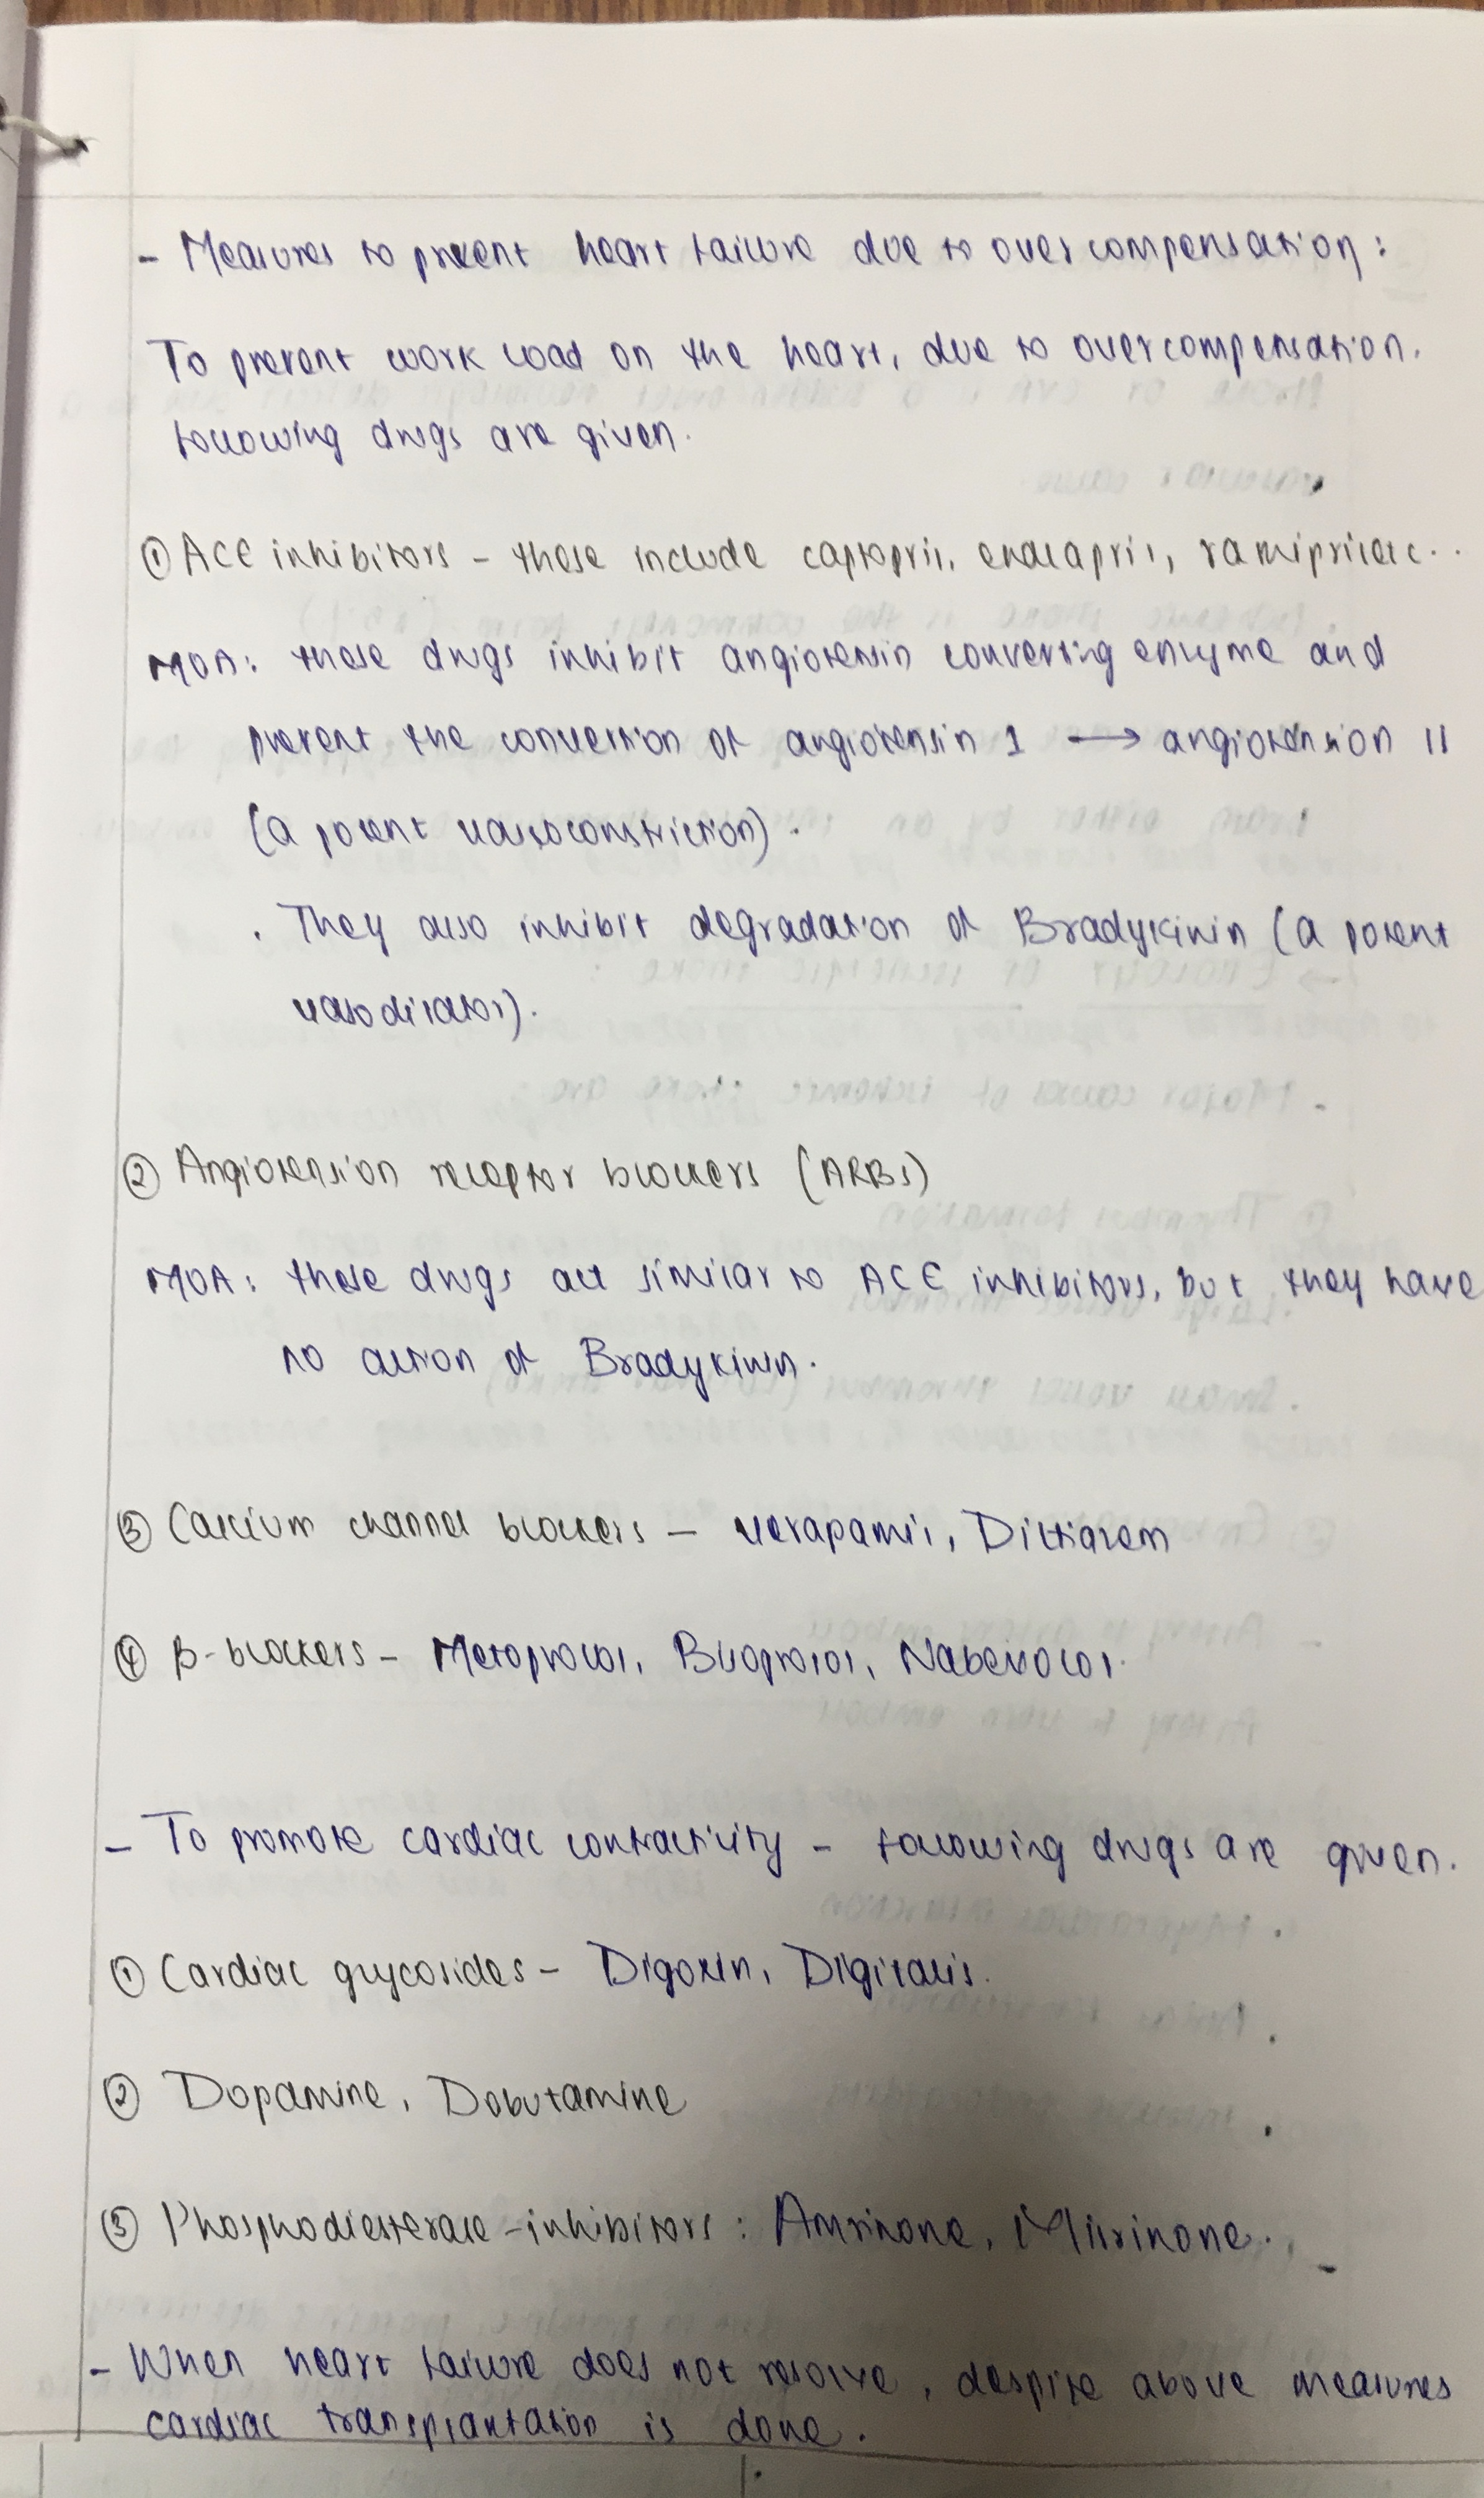 - Measures to prevent heart failure due to over compensation :
To prevent work load on the heart, due to overcompensation.
following drugs are given.
① ACE inhibitors - these include captopril, enalapril, ramipril etc..
MOA: these drugs inhibit angiotensin converting enzyme and
prevent the convertion of angiotensin I → angiotension II
(a potent vasoconstriction).
. They also inhibit degradation of Bradykinin (a potent
vasodilator).
② Angiotension receptor blockers (ARBs)
MOA: these drugs act similar to ACE inhibitors, but they have
no action of Bradykinin.
③ Calcium channel blockers - Verapamil, Diltiazem
④ β-blockers - Metoprolol, Bisoprolol, Nabevolol.
- To promote cardiac contractility - following drugs are given.
① Cardiac glycosides - Digoxin, Digitalis.
② Dopamine, Dobutamine
③ Phosphodiesterase-inhibitors : Amrinone, Milrinone.
- When heart failure does not resolve, despite above measures
cardiac transplantation is done.